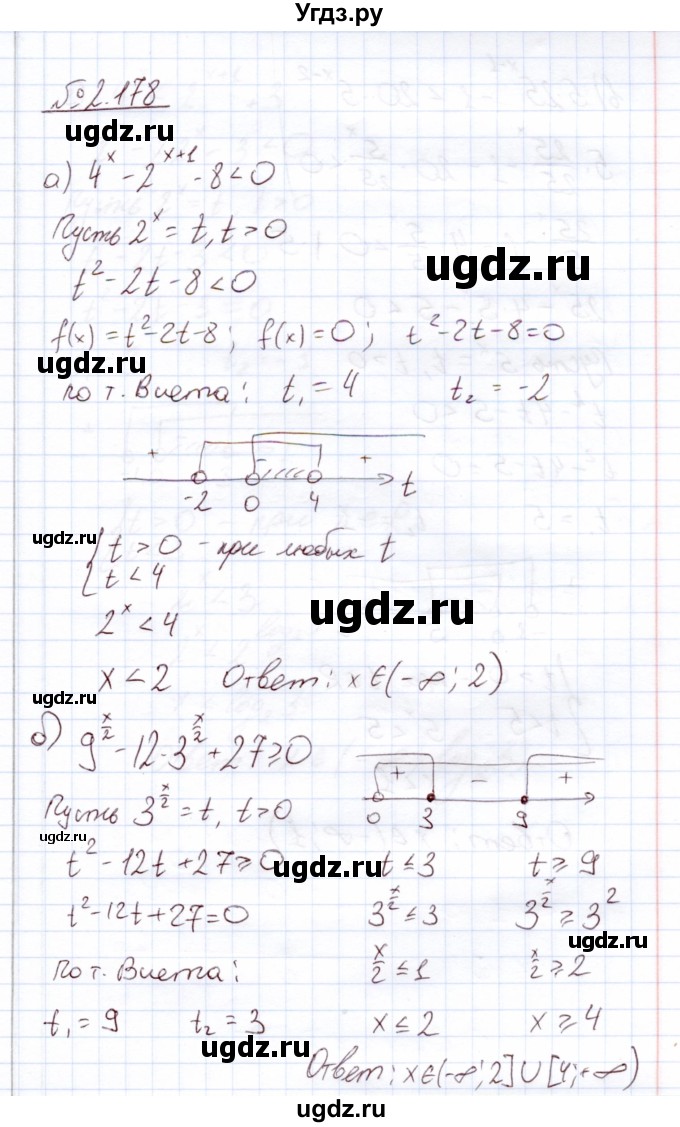 Угдз.ру
№2.178
ugdz.ru
а) 4^x - 2^{x+1} - 8 < 0
Пусть 2^x = t, t > 0
ugdz.ru
t² - 2t - 8 < 0
f(x) = t² - 2t - 8; f(x) = 0; t² - 2t - 8 = 0
ugdz.ru
по т. Виета: t₁ = 4 t₂ = -2
+ - +
-2 0 4 t
ugdz.ru
{ t > 0 - при любых t
t < 4
ugdz.ru
2^x < 4
x < 2 Ответ: x ∈ (-∞; 2)
ugdz.ru
б) 9^{x/2} - 12·3^{x/2} + 27 ≥ 0
+ - +
0 3 9
Пусть 3^{x/2} = t, t > 0
ugdz.ru
t² - 12t + 27 ≥ 0 t ≤ 3 t ≥ 9
t² - 12t + 27 = 0 3^{x/2} ≤ 3 3^{x/2} ≥ 3²
ugdz.ru
по т. Виета: x/2 ≤ 1 x/2 ≥ 2
t₁ = 9 t₂ = 3 x ≤ 2 x ≥ 4
ugdz.ru
Ответ: x ∈ (-∞; 2] ∪ [4; +∞)
ugdz.ru